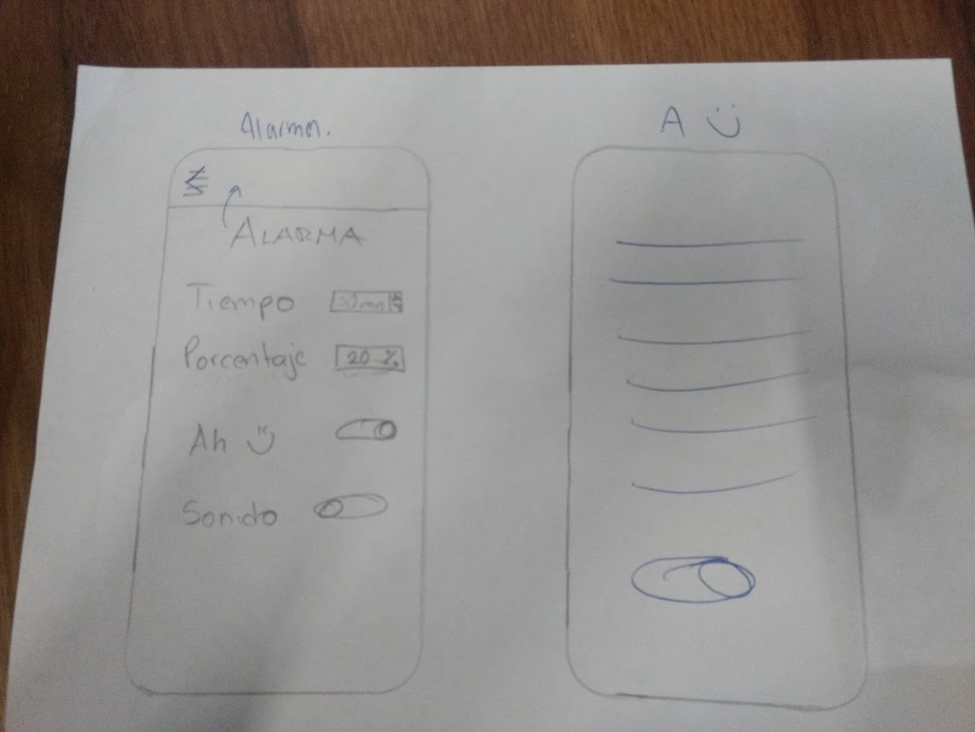 Alarma.
ALARMA
Tiempo
Porcentaje 20 %
Ah
Sonido
A